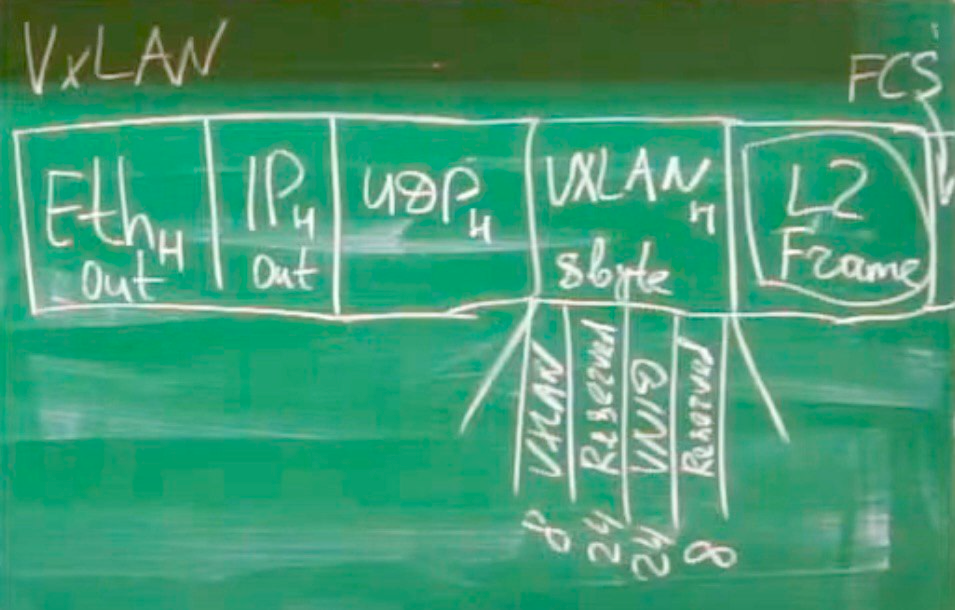 VxLAN
FCS
Eth H out
IP H out
UDP H
VXLAN H 8byte
L2 Frame
VXLAN
Reserved
VNID
Reserved
8
24
24
8